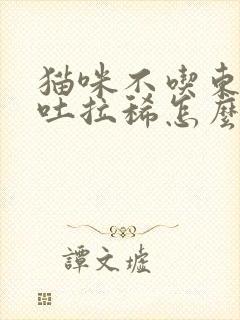 猫咪不喫東
吐拉稀怎麽
譚文墟